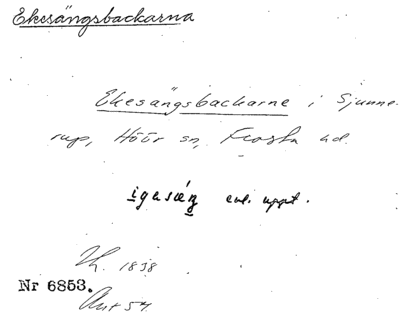 Ekesängsbackarna
Ekesängsbackarne i Sjunne-
rup, Höör sn, Frosta hd.
igasäŋ enl. uppt.
1838
Nr 6853.